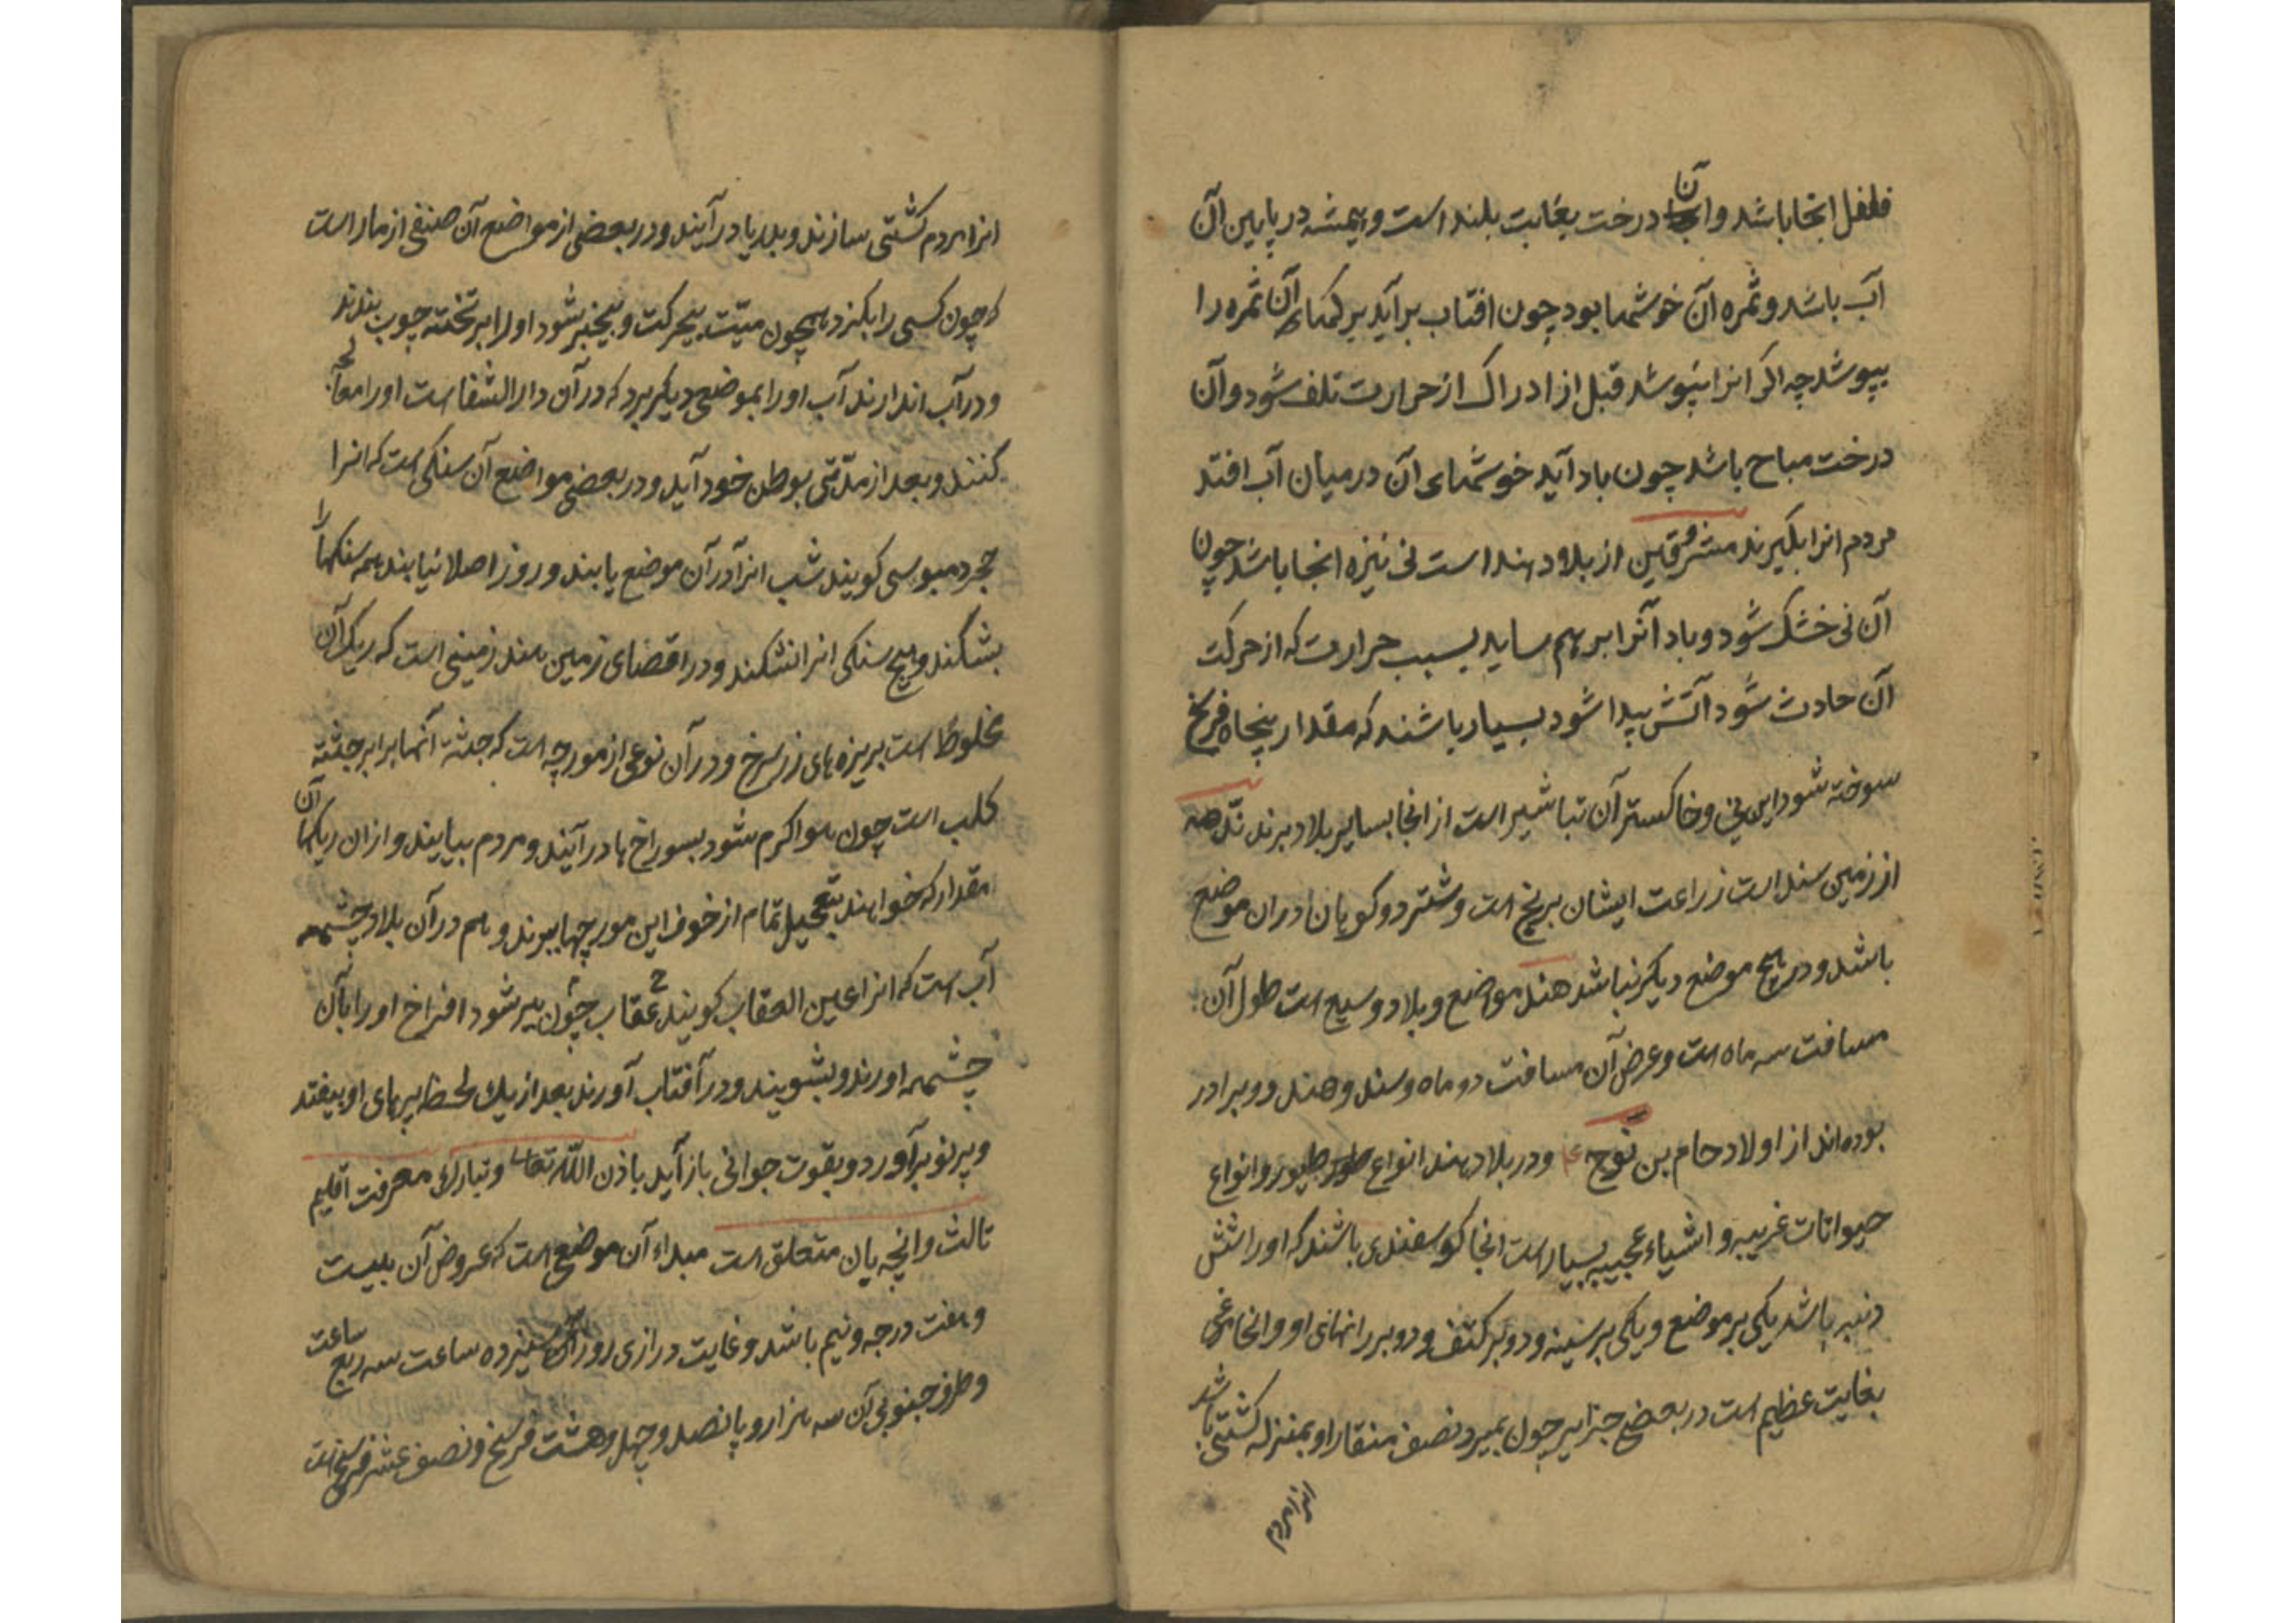 فلفل انجا باشد و آن درخت بغایت بلند است و همیشه در پایین آن
آب باشد و ثمره آن خوشها بود چون افتاب برآید برکهاء آن ثمره را
بپوشد چه اکر انرا نپوشد قبل از ادراک از حرارت تلف شود و آن
درخت مباح باشد چون باد آید خوشهای آن در میان آب افتد
مردم انرا بکیرند از بلاد هند است نی نیزه انجا باشد چون
آن نی خشک شود و باد آنرا بر هم ساید بسبب حرارت که از حرکت
آن حادث شود آتش پیدا شود بسیار باشند که مقدار پنجاه فرسخ
سوخته شود این نی و خاکستر آن تباشیر است از انجا بسایر بلاد برند
از زمین سند است زراعت ایشان برنج است و شتر دو کوهان در ان موضع
باشد و در هیچ موضع دیکر نباشد هند مواضع و بلاد وسیع است طول آن
مسافت سه ماه است و عرض آن مسافت دو ماه و سند و هند دو برادر
بوده اند از اولاد حام بن نوح ع و در بلاد هند انواع طیور و انواع
حیوانات غریبه و اشیاء عجیبه بسیار است انجا کوسفندی باشند که او را شش
دنبه باشد یکی بر موضع و یکی بر سینه و دو بر کتف و دو بر رانهای او و انجا مرغی
بغایت عظیم است در بعضی جزایر چون بمیرد نصف منقار او بمنزله کشتی باشد
انرا مردم
انرا مردم کشتی سازند و بدریا درآیند و در بعضی از مواضع آن صنفی از مار است
که چون کسی را بکزد همچون میت بیحرکت و بیخبر شود او را بر تخته چوب بندند
و در آب اندازند آب او را بموضعی دیکر برد که در آن دار الشفا است او را معالجه
کنند و بعد از مدتی بوطن خود آید و در بعضی مواضع آن سنکی است که انرا
حجر کویند شب انرا در آن موضع یابند و روز اصلا نیابند همه سنکها را
بشکند و هیچ سنکی انرا نشکند و در اقصای زمین هند زمینی است که ریک آن
مخلوط است بریزه های زر سرخ و در آن نوعی از مورچه است که جثه آنها برابر جثه
کلب است چون هوا کرم شود بسوراخ ها درآیند و مردم بیایند و از ان ریکها آن
مقدار که خواهند بتعجیل تمام از خوف این مورچها ببرند و هم در آن بلاد چشمه
آب است که انرا عین العقاب کویند عقاب چون پیر شود افراخ او را بآن
چشمه اورند و بشویند و در آفتاب آورند بعد از یک لحظه پرهای او بیفتد
و پر نو برآورد و بقوت جوانی باز آید باذن الله تعالی و تبارک معرفت اقلیم
ثالث و انچه بان متعلق است مبداء آن موضع است که عروض آن بیست
و هفت درجه و نیم باشد و غایت درازی روز سیزده ساعت سه ربع ساعت
و طرف جنوبی آن سه هزار و پانصد و چهل و هشت فرسخ و نصف عشر فرسخ است